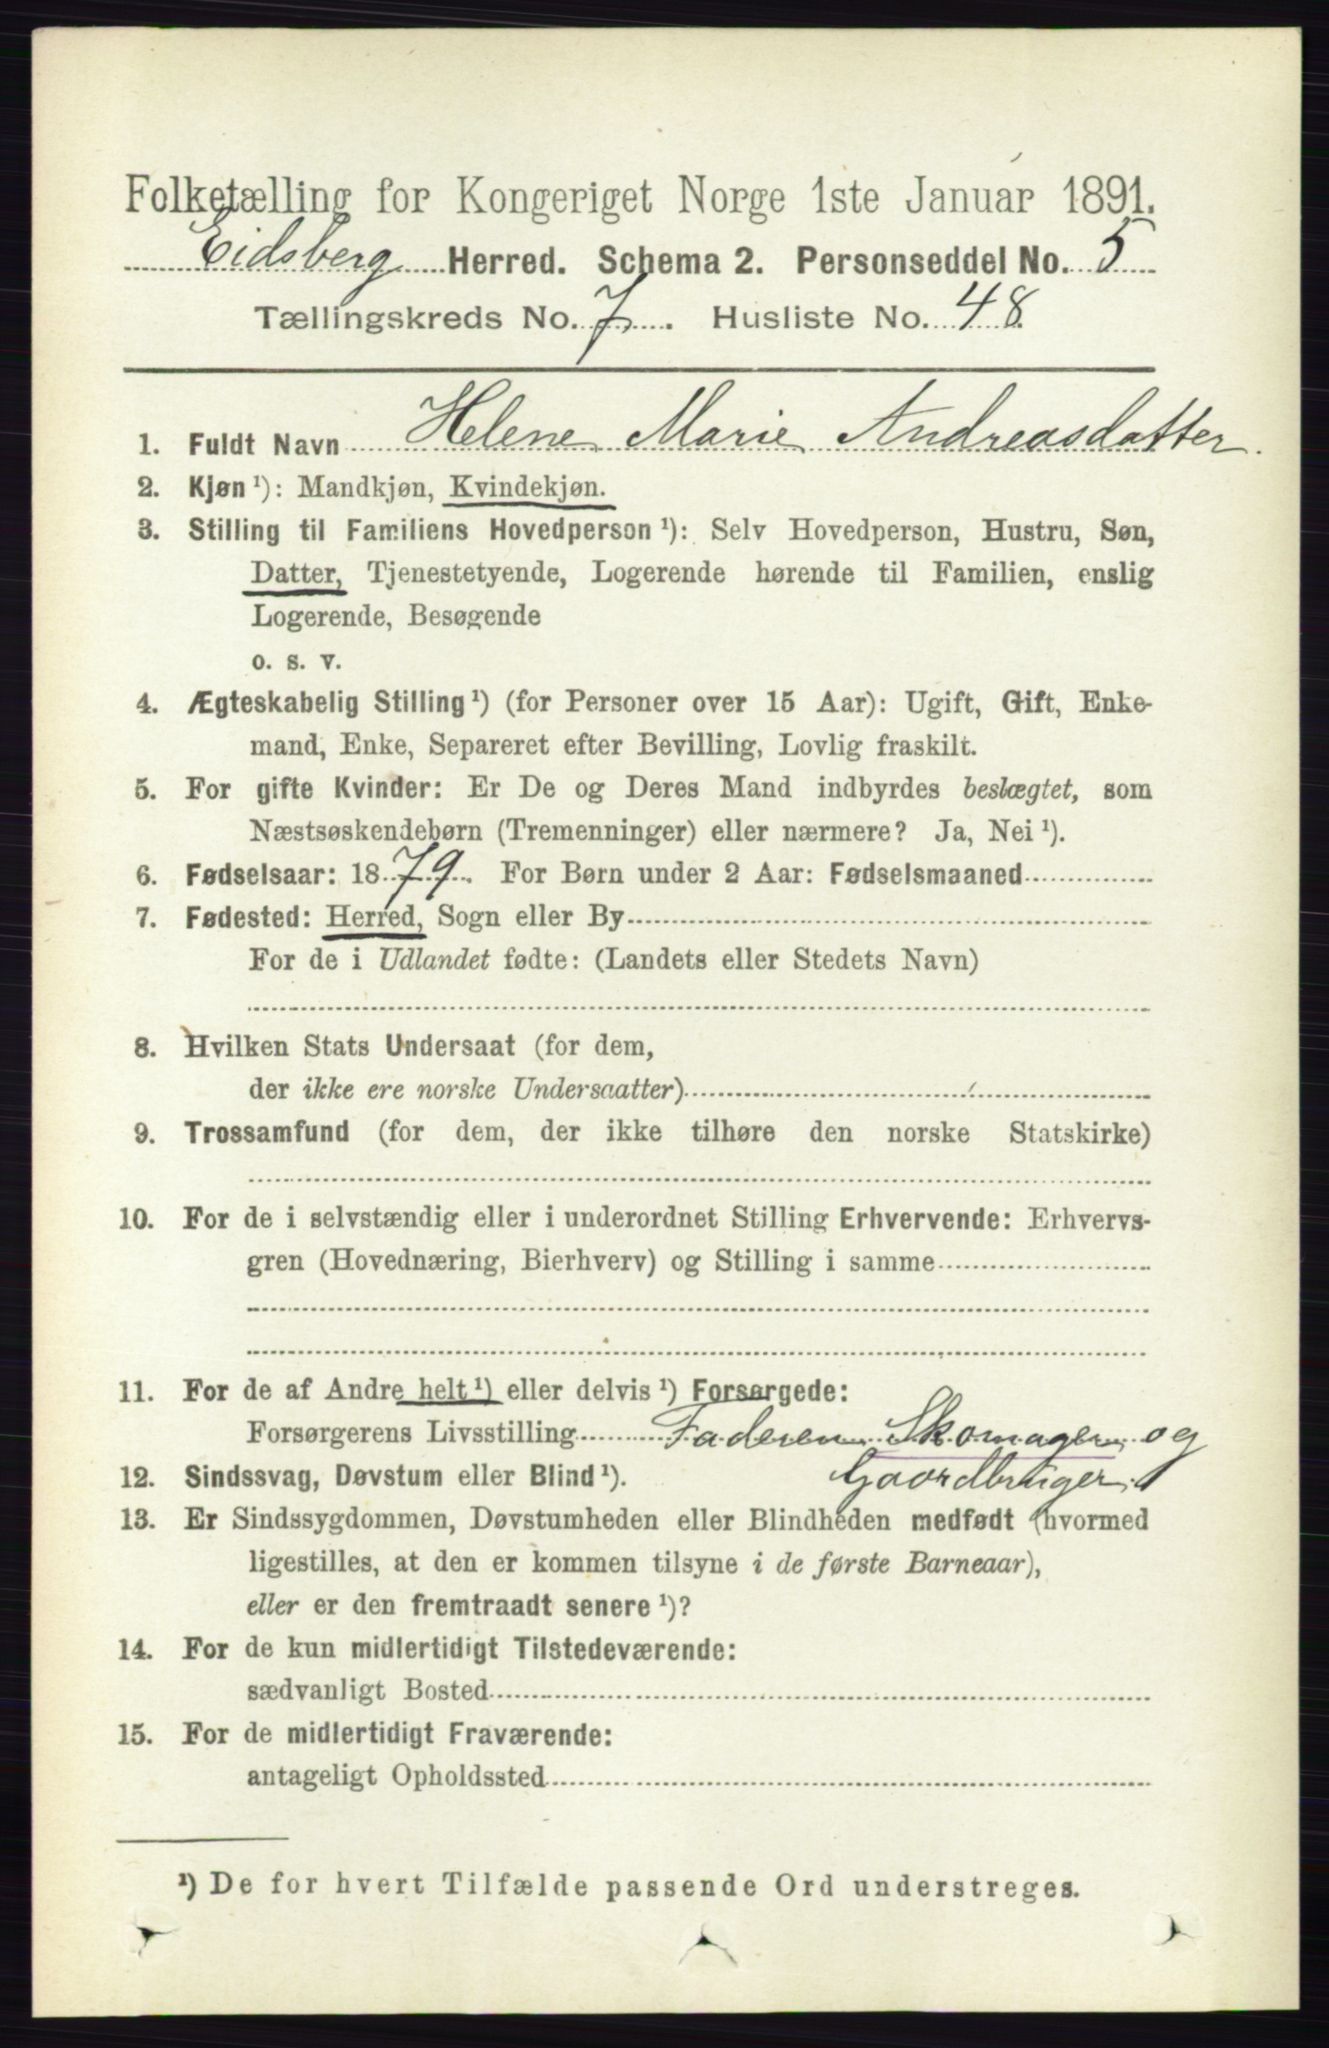 Folketælling for Kongeriget Norge 1ste Januar 1891.
Eidsberg Herred. Schema 2. Personseddel No. 5
Tællingskreds No. 7. Husliste No. 48
1. Fuldt Navn Helene Marie Andreasdatter.
2. Kjøn¹): Mandkjøn, Kvindekjøn.
3. Stilling til Familiens Hovedperson¹): Selv Hovedperson, Hustru, Søn,
Datter, Tjenestetyende, Logerende hørende til Familien, enslig
Logerende, Besøgende
o. s. v.
4. Ægteskabelig Stilling¹) (for Personer over 15 Aar): Ugift, Gift, Enke-
mand, Enke, Separeret efter Bevilling, Lovlig fraskilt.
5. For gifte Kvinder: Er De og Deres Mand indbyrdes beslægtet, som
Næstsøskendebørn (Tremenninger) eller nærmere? Ja, Nei¹).
6. Fødselsaar: 1879. For Børn under 2 Aar: Fødselsmaaned
7. Fødested: Herred, Sogn eller By
For de i Udlandet fødte: (Landets eller Stedets Navn)
8. Hvilken Stats Undersaat (for dem,
der ikke ere norske Undersaatter)
9. Trossamfund (for dem, der ikke tilhøre den norske Statskirke)
10. For de i selvstændig eller i underordnet Stilling Erhvervende: Erhvervs-
gren (Hovednæring, Bierhverv) og Stilling i samme
11. For de af Andre helt¹) eller delvis¹) Forsørgede:
Forsørgerens Livsstilling Faderen Skomager og
12. Sindssvag, Døvstum eller Blind¹). Gaardbruger.
13. Er Sindssygdommen, Døvstumheden eller Blindheden medfødt (hvormed
ligestilles, at den er kommen tilsyne i de første Barneaar),
eller er den fremtraadt senere¹)?
14. For de kun midlertidigt Tilstedeværende:
sædvanligt Bosted
15. For de midlertidigt Fraværende:
antageligt Opholdssted
¹) De for hvert Tilfælde passende Ord understreges.